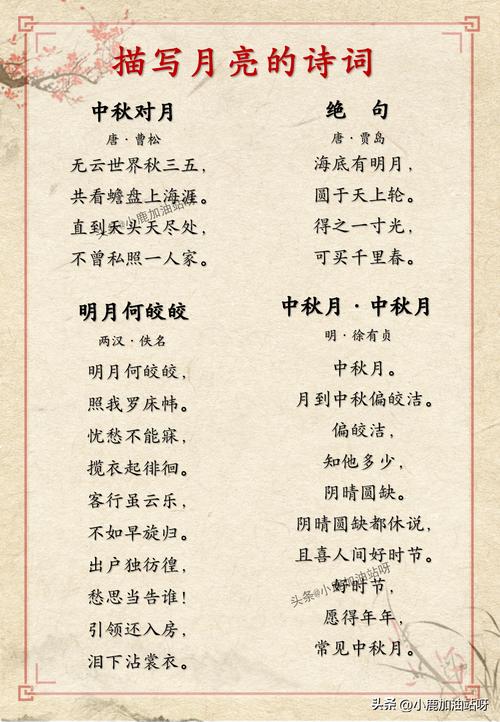 描写月亮的诗词
中秋对月
唐·曹松
无云世界秋三五，
共看蟾盘上海涯。
直到天头天尽处，
不曾私照一人家。
绝 句
唐·贾岛
海底有明月，
圆于天上轮。
得之一寸光，
可买千里春。
明月何皎皎
两汉·佚名
明月何皎皎，
照我罗床帏。
忧愁不能寐，
揽衣起徘徊。
客行虽云乐，
不如早旋归。
出户独彷徨，
愁思当告谁！
引领还入房，
泪下沾裳衣。
中秋月·中秋月
明·徐有贞
中秋月。
月到中秋偏皎洁。
偏皎洁，
知他多少，
阴晴圆缺。
阴晴圆缺都休说，
且喜人间好时节。
好时节，
愿得年年，
常见中秋月。
头条@小鹿加油站呀
头条@小鹿加油站呀
头条@小鹿加油站呀